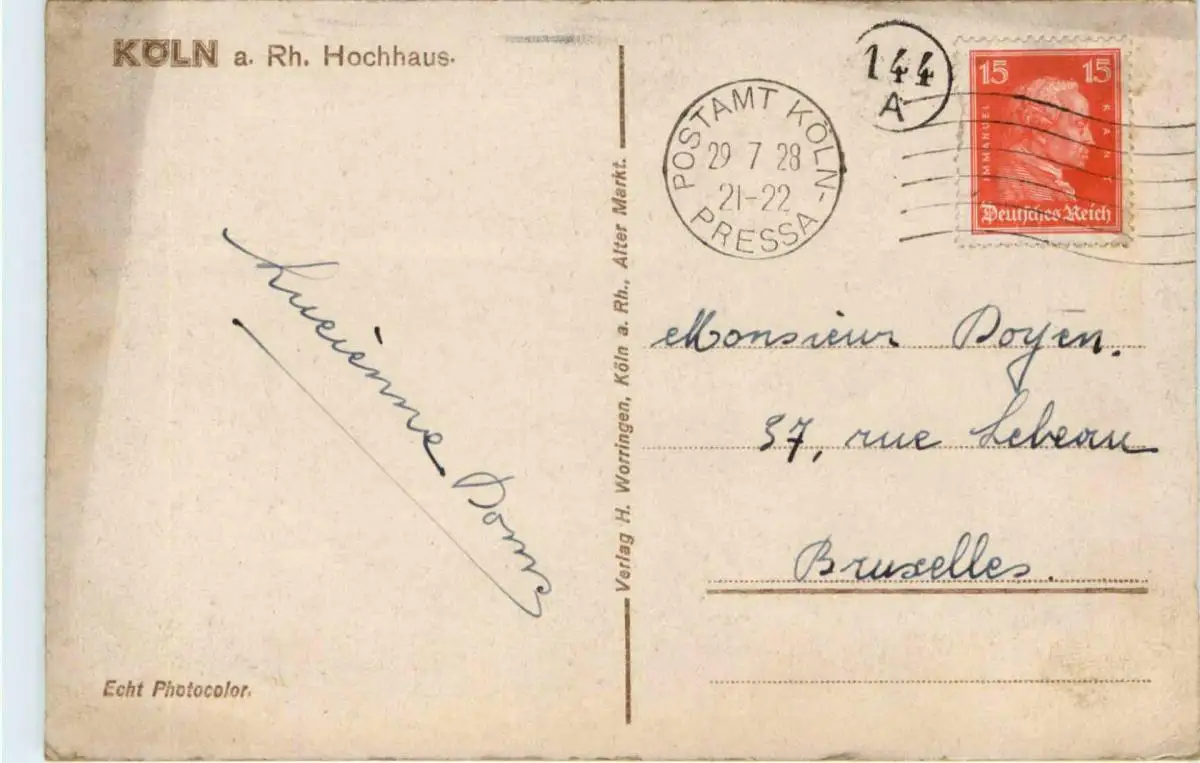 KÖLN a. Rh. Hochhaus.
144
A
POSTAMT KÖLN-
29 7 28
21-22
PRESSA
15 15
IMMANUEL KANT
Deutsches Reich
Lucienne
Verlag H. Worringen, Köln a. Rh., Alter Markt.
Monsieur Doyen.
37, rue Lebeau
Bruxelles.
Echt Photocolor.